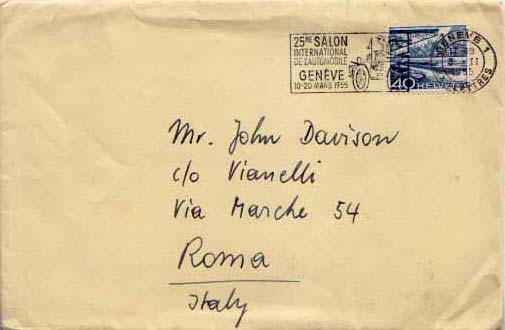 25ME SALON
INTERNATIONAL
DE L'AUTOMOBILE
GENÈVE
10-20 MARS 1955
40 HELVETIA
GENÈVE 1
LETTRES
Mr. John Davison
c/o Vianelli
Via Marche 54
Roma
Italy